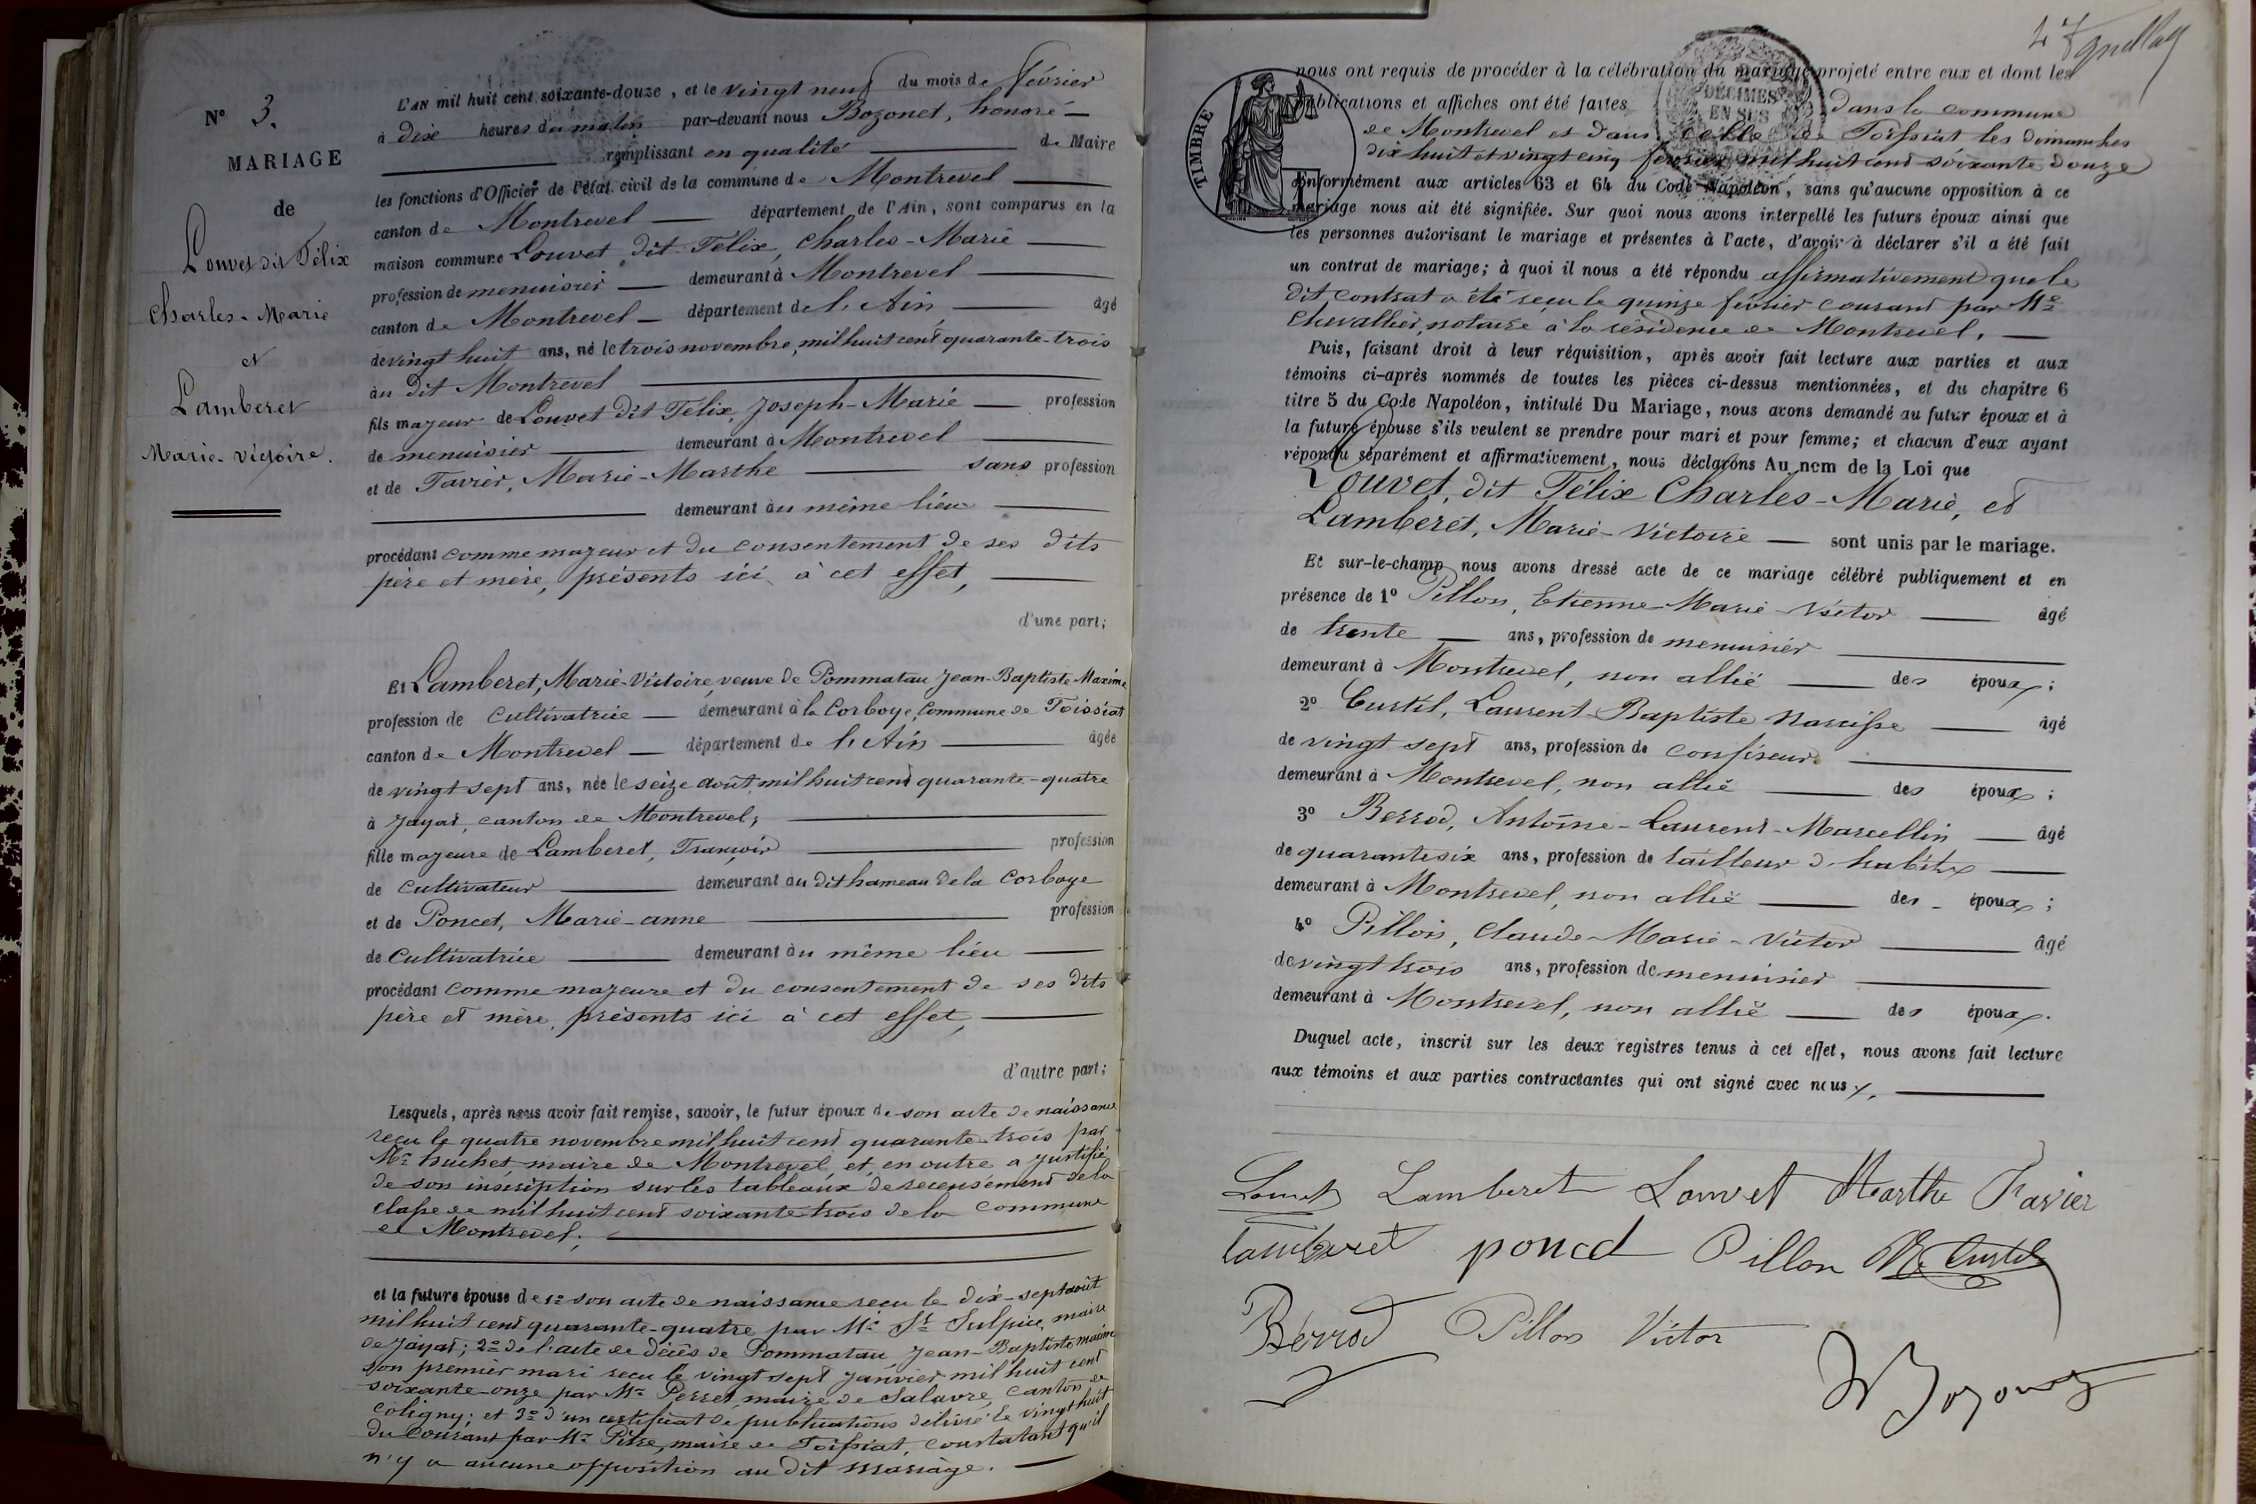 N° 3.
MARIAGE
de
Louvet dit Félix
Charles-Marie
et
Lamberet
Marie-Victoire.
L'AN mil huit cent soixante-douze, et le vingt neuf du mois de février
à dix heures du matin par-devant nous Bozonet, honoré
remplissant en qualité de Maire
les fonctions d'Officier de l'état civil de la commune de Montrevel
canton de Montrevel département de l'Ain, sont comparus en la
maison commune Louvet dit Félix, Charles-Marie
profession de menuisier demeurant à Montrevel
canton de Montrevel département de l'Ain âgé
de vingt huit ans, né le trois novembre, mil huit cent quarante-trois
au dit Montrevel
fils majeur de Louvet dit Félix, Joseph-Marie profession
de menuisier demeurant à Montrevel
et de Favier, Marie-Marthe sans profession
demeurant au même lieu
procédant comme majeur et du consentement de ses dits
père et mère, présents ici à cet effet,
d'une part;
Et Lamberet, Marie-Victoire, veuve de Pommatau Jean-Baptiste Maxime
profession de cultivatrice demeurant à la Corboye, commune de Foissiat
canton de Montrevel département de l'Ain âgée
de vingt sept ans, née le seize août mil huit cent quarante-quatre
à Jayat, canton de Montrevel;
fille majeure de Lamberet, François profession
de cultivateur demeurant au dit hameau de la Corboye
et de Poncet, Marie-anne profession
de cultivatrice demeurant au même lieu
procédant comme majeure et du consentement de ses dits
père et mère, présents ici à cet effet,
d'autre part;
Lesquels, après nous avoir fait remise, savoir, le futur époux de son acte de naissance
reçu le quatre novembre mil huit cent quarante trois par
Mr huchet, maire de Montrevel, et en outre a justifié
de son inscription sur les tableaux de recensement de la
classe de mil huit cent soixante trois de la commune
de Montrevel;
et la future épouse de 1° son acte de naissance reçu le dix-sept août
mil huit cent quarante-quatre par Mr St Sulpice, maire
de Jayat; 2° de l'acte de décès de Pommatau, Jean-Baptiste maxime
son premier mari reçu le vingt sept janvier mil huit cent
soixante-onze par Mr Perret, maire de Salavre, canton de
Coligny; et 3° d'un certificat de publications délivré le vingt huit
du courant par Mr Pitre, maire de Foissiat, constatant qu'il
n'y a aucune opposition au dit mariage.
nous ont requis de procéder à la célébration du mariage projeté entre eux et dont les
publications et affiches ont été faites dans la commune
de Montrevel et dans celle de Foissiat les dimanches
dix huit et vingt cinq février mil huit cent soixante douze
conformément aux articles 63 et 64 du Code Napoléon, sans qu'aucune opposition à ce
mariage nous ait été signifiée. Sur quoi nous avons interpellé les futurs époux ainsi que
les personnes autorisant le mariage et présentes à l'acte, d'avoir à déclarer s'il a été fait
un contrat de mariage; à quoi il nous a été répondu affirmativement que le
dit contrat a été reçu le quinze février courant par Me
Chevallier, notaire à la résidence de Montrevel.
Puis, faisant droit à leur réquisition, après avoir fait lecture aux parties et aux
témoins ci-après nommés de toutes les pièces ci-dessus mentionnées, et du chapitre 6
titre 5 du Code Napoléon, intitulé Du Mariage, nous avons demandé au futur époux et à
la future épouse s'ils veulent se prendre pour mari et pour femme; et chacun d'eux ayant
répondu séparément et affirmativement, nous déclarons Au nom de la Loi que
Louvet, dit Félix Charles-Marie, et
Lamberet, Marie-Victoire sont unis par le mariage.
Et sur-le-champ nous avons dressé acte de ce mariage célébré publiquement et en
présence de 1° Pillon, Etienne-Marie-Victor âgé
de trente ans, profession de menuisier
demeurant à Montrevel, non allié des époux;
2° Curtil, Laurent-Baptiste Narcisse âgé
de vingt sept ans, profession de confiseur
demeurant à Montrevel, non allié des époux;
3° Berrod, Antoine-Laurent-Marcellin âgé
de quarante six ans, profession de tailleur d'habits
demeurant à Montrevel, non allié des époux;
4° Pillon, Claude-Marie-Victor âgé
de vingt trois ans, profession de menuisier
demeurant à Montrevel, non allié des époux.
Duquel acte, inscrit sur les deux registres tenus à cet effet, nous avons fait lecture
aux témoins et aux parties contractantes qui ont signé avec nous.
Louvet Lamberet Louvet Marthe Favier
Lamberet poncet Pillon Curtil
Bérrod Pillon Victor
H Bozonet
TIMBRE
2
DÉCIMES
EN SUS